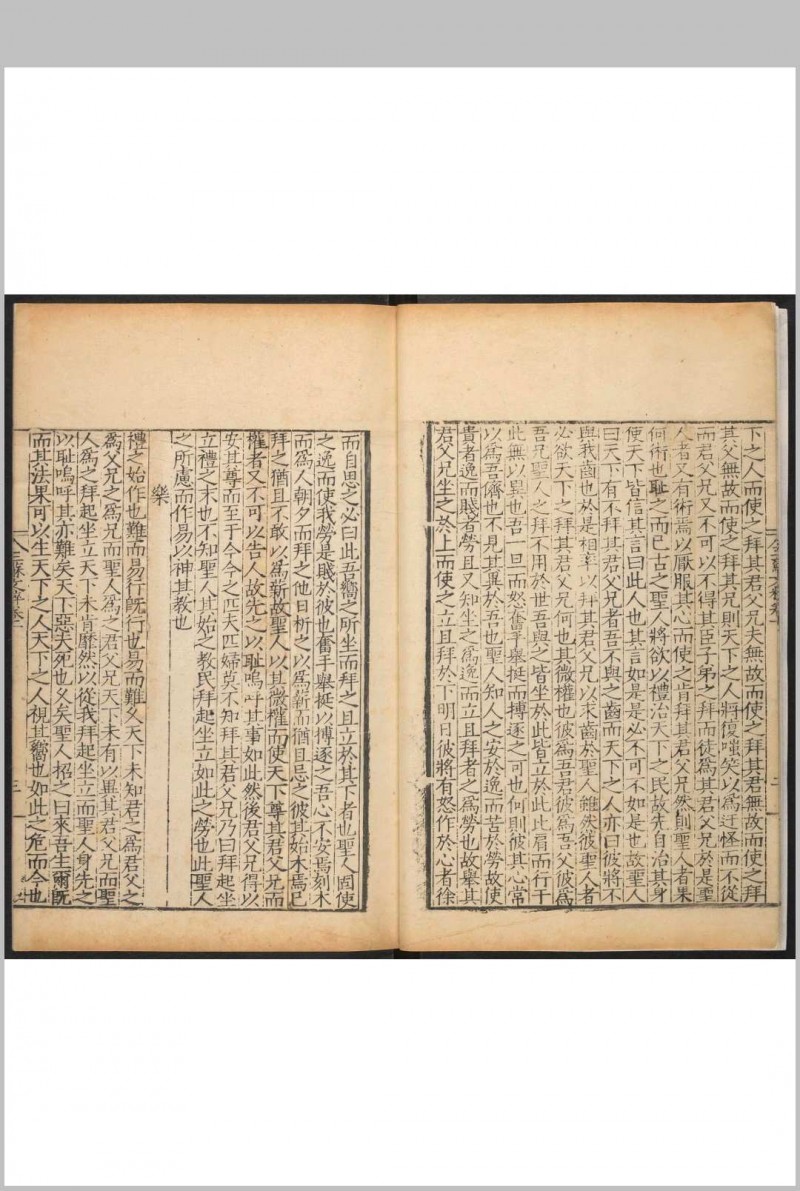 下之人而使之拜其君父兄夫無故而使之拜其君無故而使之拜
其父無故而使之拜其兄則天下之人將復嗤笑以爲迂怪而不從
而君父兄又不可以不得其臣子弟之拜而徒爲其君父兄於是聖
人者又有術焉以厭服其心而使之肯拜其君父兄然則聖人者果
何術也耻之而已古之聖人將欲以禮治天下之民故先自治其身
使天下皆信其言曰此人也其言如是是必不可不如是也故聖人
曰天下有不拜其君父兄者吾不與之齒而天下之人亦曰彼將不
與我齒也於是相率以拜其君父兄以求齒於聖人雖然彼聖人者
必欲天下之拜其君父兄何也其微權也彼爲吾君彼爲吾父彼爲
吾兄聖人之拜不用於世吾與之皆坐於此皆立於此比肩而行于
此無以異也吾一旦而怒奮手舉挺而搏逐之可也何則彼其心常
以爲吾儕也不見其異於吾也聖人知人之安於逸而苦於勞故使
貴者逸而賤者勞且又知坐之爲逸而立且拜者之爲勞也故舉其
君父兄坐之於上而使之立且拜於下明日彼將有怒作於心者徐
二
而自思之必曰此吾嚮之所坐而拜之且立於其下者也聖人固使
之逸而使我勞是賤於彼也奮手舉挺以搏逐之吾心不安焉刻木
而爲人朝夕而拜之他日析之以爲薪而猶且忌之彼其始木焉已
拜之猶且不敢以爲薪故聖人以其微權而使天下尊其君父兄而
權者又不可以告人故先之以耻嗚呼其事如此然後君父兄得以
安其尊而至于今今之匹夫匹婦莫不知拜其君父兄乃曰拜起坐
立禮之末也不知聖人其始之教民拜起坐立如此之勞也此聖人
之所慮而作易以神其教也
樂
禮之始作也難而易行旣行也易而難久天下未知君之爲君父之
爲父兄之爲兄而聖人爲之君父兄天下未有以異其君父兄而聖
人爲之拜起坐立天下未肯靡然以從我拜起坐立而聖人身先之
以耻嗚呼其亦難矣天下惡夫死也久矣聖人招之曰來吾生爾旣
而其法果可以生天下之人天下之人視其嚮也如此之危而今也
三